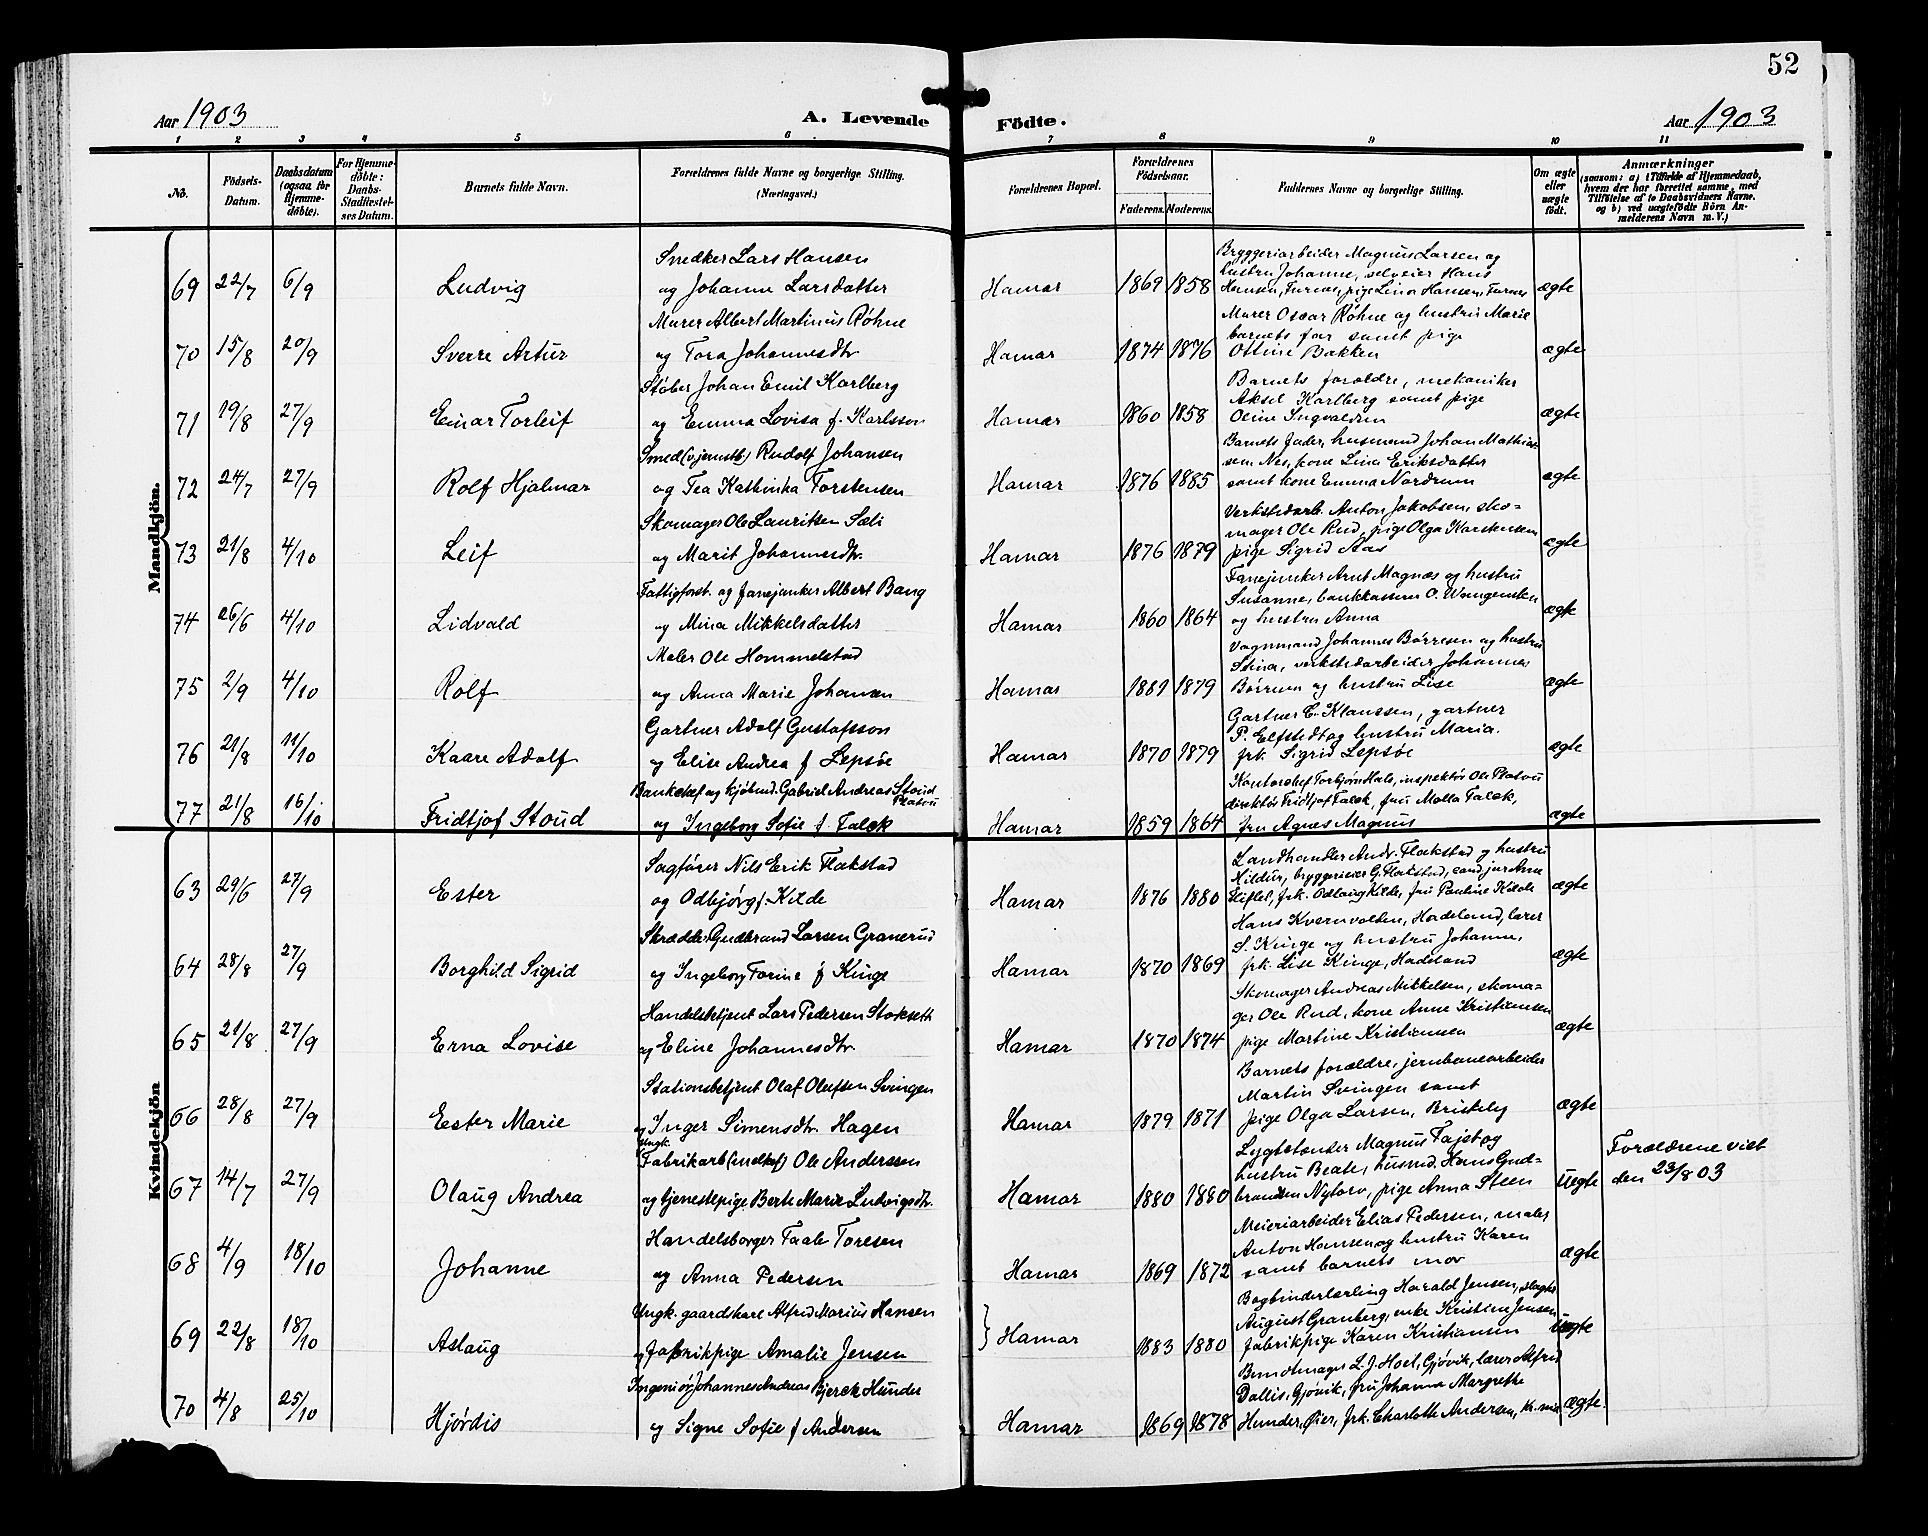 52
Aar 1903
A. Levende Födte.
Aar 1903
1 2 3 4 5 6 7 8 9 10 11
No.
Födsels-Datum.
Daabsdatum (ogsaa for Hjemmedöbte).
For Hjemmedöbte: Daabs-Stadfæstelses Datum.
Barnets fulde Navn.
Forældrenes fulde Navne og borgerlige Stilling. (Næringsvei.)
Forældrenes Bopæl.
Forældrenes Fødselsaar.
Faderens. Moderens.
Faddernes Navne og borgerlige Stilling.
Om ægte eller uægte født.
Anmærkninger
(saasom: a) i Tilfælde af Hjemmedaab, hvem der har forrettet samme, med Tilføielse af to Daabsvidners Navne, og b) ved uægtefødte Børn Anmelderens Navn m. V.)
Mandkjön.
Smedker Lars Hansen
Bryggeriarbeider Magnus Larsen og
hustru Johanne, selveier Hans
69 22/7 6/9 Ludvig og Johanne Larsdatter Hamar 1869 1858 Hansen, Furnes, pige Lina Hansen, Furnes ægte
Murer Albert Martinus Røhne
Murer Oscar Røhne og hustru Marie
barnets far samt pige
70 15/8 20/9 Sverre Artur og Tora Johannesdtr Hamar 1874 1876 Ottine Bakken ægte
Støber Johan Emil Karlberg
Barnets forældre, mekaniker
Aksel Karlberg samt pige
71 19/8 27/9 Einar Torleif og Emma Lovisa f. Karlsson Hamar 1860 1858 Oline Ingvaldsen ægte
Smed (v. jernstb.) Rudolf Johansen
Barnets fader, husmand Johan Mathias
sen Nes, kone Lina Eriksdatter
72 24/7 27/9 Rolf Hjalmar og Tea Kathinka Torstensen Hamar 1876 1885 samt kone Emma Nordrum ægte
Skomager Ole Lauritsen Sæli
Verkstedarb. Anton Jakobsen, sko-
mager Ole Rud, pige Olga Karstensen
73 21/8 4/10 Leif og Marit Johannesdtr. Hamar 1876 1879 pige Sigrid Aas ægte
Fattigforst. og fanejunker Albert Bang
Fanejunker Arnt Magnæs og hustru
Susanne, bankkasserer O. Wangensten
74 26/6 4/10 Lidvald og Mina Mikkelsdatter Hamar 1860 1864 og hustru Anna ægte
Maler Ole Hommelstad
Vognmand Johannes Børresen og hustru
Stina, verkstedarbeider Johannes
75 2/9 4/10 Rolf og Anna Marie Johansen Hamar 1889 1879 Børresen og hustru Lise ægte
Gartner Adolf Gustafsson
Gartner C. Klaussen, gartner
P. Elfstedt og hustru Maria.
76 21/8 11/10 Kaare Adolf og Elise Andrea f Lepsøe Hamar 1870 1879 frk. Sigrid Lepsøe ægte
Bankchef og kjøbmd. Gabriel Andreas Stoud Platou
Kontorchef Torbjørn Hals, inspektør Ole Platou
direktør Fridtjof Falck, fru Molla Falck,
77 21/8 16/10 Fridtjof Stoud og Ingeborg Sofie f. Falck Hamar 1859 1864 fru Agnes Magnus ægte
Kvindekjön
Sagfører Nils Erik Flakstad
Landhandler Andr. Flakstad og hustru
Hildur, bryggerieier G. Flakstad, cand jur Arne
63 29/6 27/9 Ester og Odbjørg f. Kilde Hamar 1876 1880 frk. Odlaug Kilde, fru Pauline Kilde ægte
Skrædder Gudbrand Larsen Granerud
Hans Kvernvolden, Hadeland, lærer
S. Kinge og hustru Johanne,
64 28/8 27/9 Borghild Sigrid og Ingeborg Torine f Kinge Hamar 1870 1869 frk. Lise Kinge, Hadeland ægte
Handelsbetjent Lars Pedersen Stokseth
Skomager Andreas Mikkelsen, skoma-
ger Ole Rud, kone Anne Kristiansen
65 21/8 27/9 Erna Lovise og Eline Johannesdtr. Hamar 1870 1874 pige Martine Kristiansen ægte
Stationsbetjent Olaf Olufsen Svingen
Barnets forældre, jernbanearbeider
Martin Svingen samt
66 28/8 27/9 Ester Marie og Inger Simensdtr. Hagen Hamar 1879 1871 pige Olga Larsen, Briskeby ægte
Ungk. Fabrikarb. Ole Anderssen
Lygtetænder Magnus Fajet og
hustru Beate, husmd. Hans Gud-
Forældrene viet
67 14/7 27/9 Olaug Andrea og tjenestepige Berte Marie Ludvigsdtr. Hamar 1880 1880 brandsen Nytorv, pige Anna Steen Uegte den 23/8 03
Handelsborger Taale Toresen
Meieriarbeider Elias Pedersen, maler
Anton Hansen og hustru Karen
68 4/9 18/10 Johanne og Anna Pedersen Hamar 1869 1872 samt barnets mor ægte
Ungk. gaardskarl Alfred Marius Hansen
Bogbinderlærling Harald Jensen, slagter
August Granberg, enke Kristine Jensen
69 22/8 18/10 Aslaug og fabrikpige Amalie Jensen } Hamar 1883 1880 fabrikpige Karen Kristiansen Uegte
Ingeniør Johannes Andreas Bjerck Hunder
Bundtmager L. J. Hoel, Gjøvik, lærer Alfred
Dallis, Gjøvik, fru Johanna Margrethe
70 4/8 25/10 Hjørdis og Signe Sofie f Andersen Hamar 1869 1878 Hunder, Øier, frk. Charlotte Andersen, Kr.nia ægte